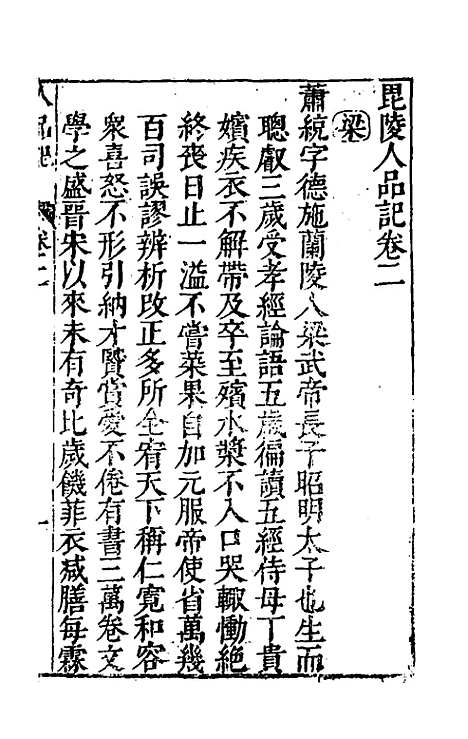 毘陵人品記卷二
梁
蕭統字德施蘭陵人梁武帝長子昭明太子也生而
聰叡三歲受孝經論語五歲徧讀五經侍母丁貴
嬪疾衣不解帶及卒至殯水漿不入口哭輙慟絶
終喪日止一溢不嘗菜果自加元服帝使省萬幾
百司誤謬辨析改正多所全宥天下稱仁寬和容
衆喜怒不形引納才賢賞愛不倦有書三萬卷文
學之盛晉宋以來未有奇比歲饑菲衣减膳每霖
人品記 卷二 一